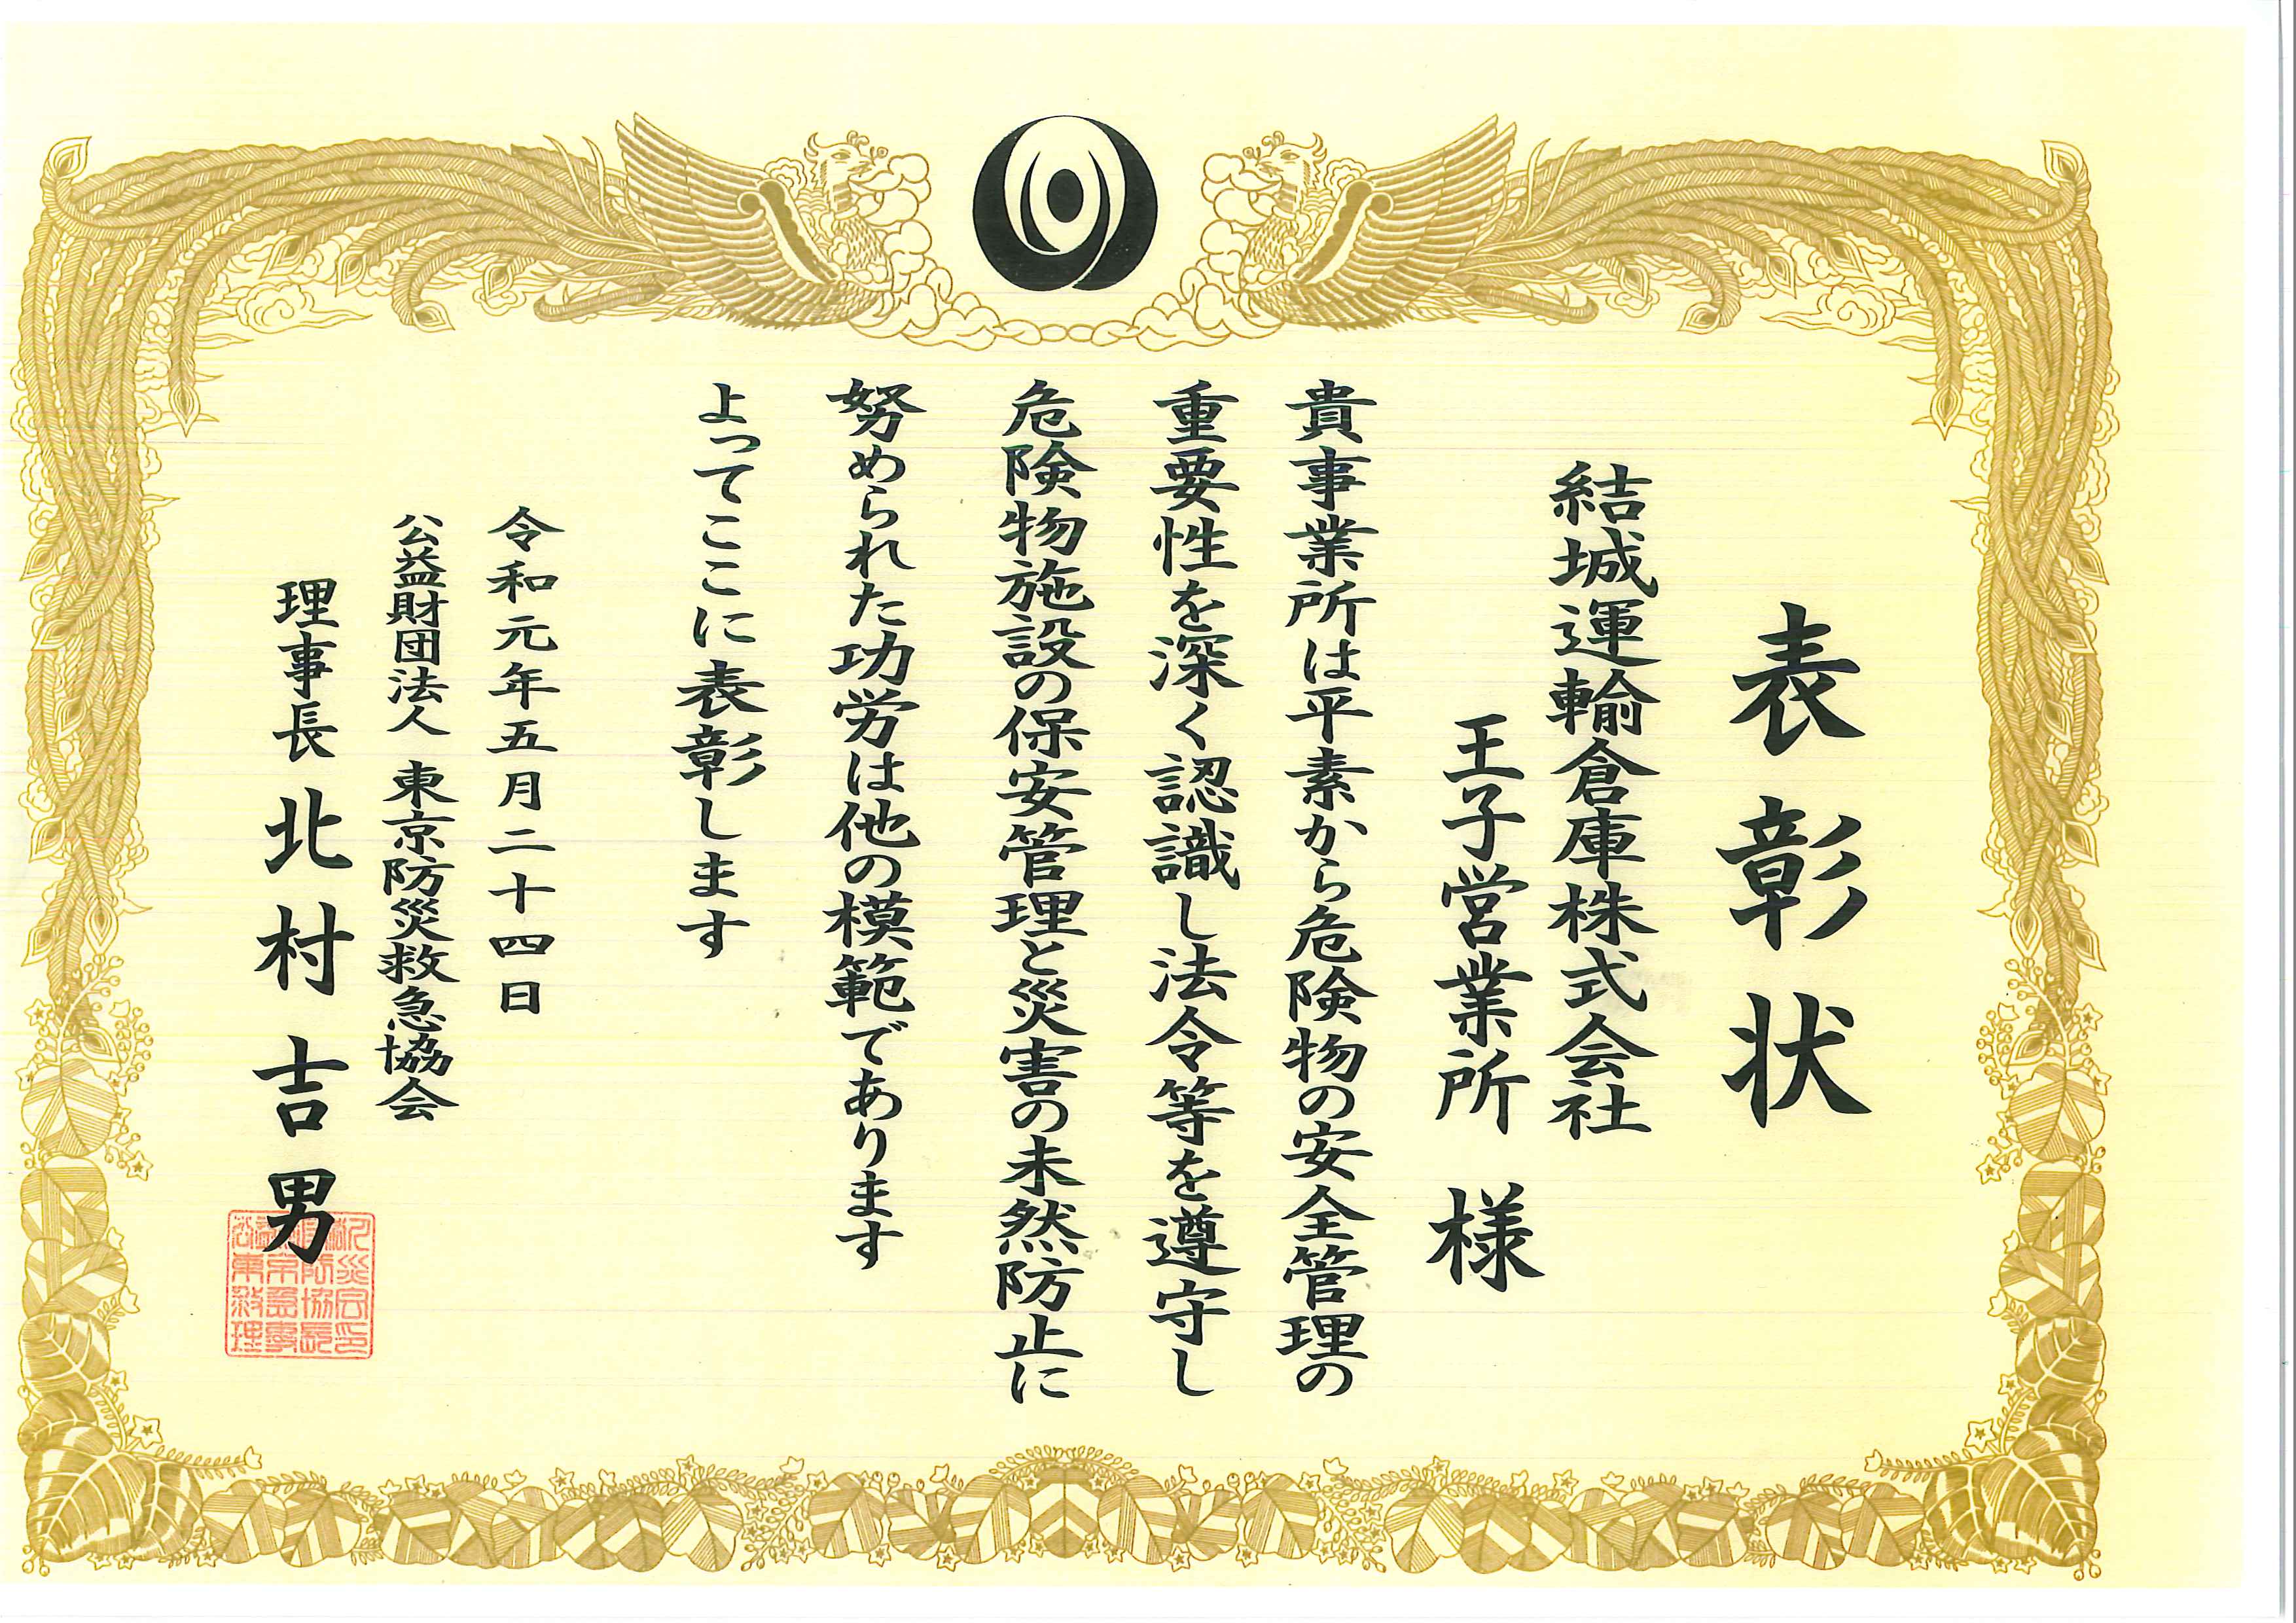 表彰状
結城運輸倉庫株式会社
王子営業所 様
貴事業所は平素から危険物の安全管理の
重要性を深く認識し法令等を遵守し
危険物施設の保安管理と災害の未然防止に
努められた功労は他の模範であります
よってここに表彰します
令和元年五月二十四日
公益財団法人 東京防災救急協会
理事長 北村 吉男